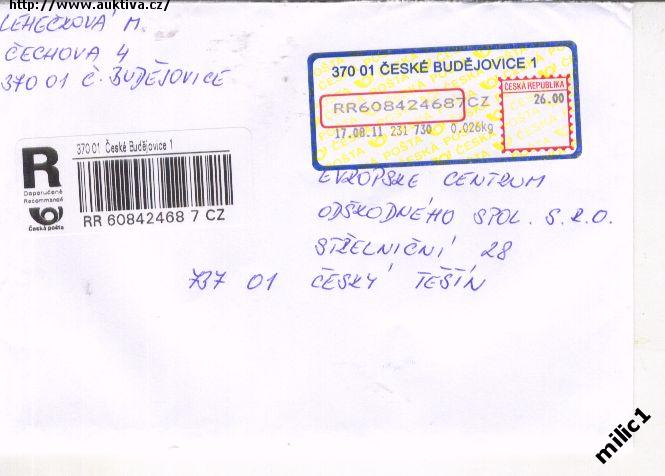 http://www.auktiva.cz/
LEHEČKOVÁ M.
ČECHOVA 4
370 01 Č. BUDĚJOVICE
370 01 ČESKÉ BUDĚJOVICE 1
RR608424687CZ
ČESKÁ REPUBLIKA
26.00
17.08.11 231 730 0.026kg
R
Doporučeně
Recommandé
Česká pošta
370 01 České Budějovice 1
RR 60842468 7 CZ
EVROPSKE CENTRUM
ODŠKODNÉHO SPOL. S.R.O.
STŘELNIČNÍ 28
737 01 ČESKÝ TĚŠÍN
milic1